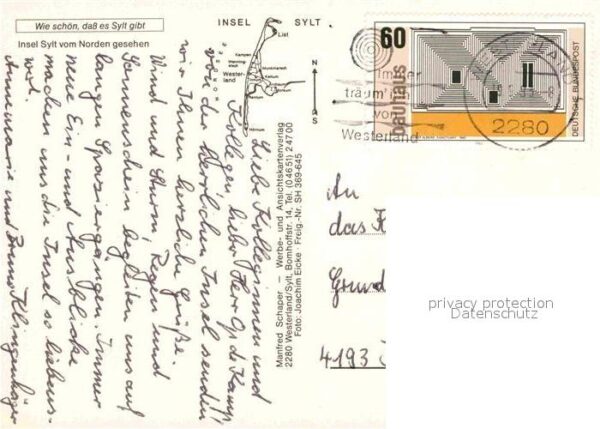 Wie schön, daß es Sylt gibt
Insel Sylt vom Norden gesehen
INSEL SYLT
List
Kampen
Wester-
land
Keitum
Hörnum
N
S
Manfred Schaper — Werbe- und Ansichtskartenverlag
2280 Westerland/Sylt, Bomhoffstr. 14, Tel. (0 46 51) 2 47 00
Foto: Joachim Eicke · Freig.-Nr. SH 369-645
Liebe Kolleginnen und
Kollegen, lieber Herr Op de Kamp,
von der herrlichen Insel senden
wir Ihnen herzliche Grüße.
Wind und Sturm, Regen und
Sonnenschein begleiten uns auf
langen Spaziergängen. Immer
neue Ein- und Ausblicke
machen uns die Insel so liebens-
wert.
Annemarie und Bruno
60
bauhaus
DEUTSCHE BUNDESPOST
Immer
träum' ich
von
Westerland
WESTERLAND
2280
An
das
Grund
4193
privacy protection
Datenschutz